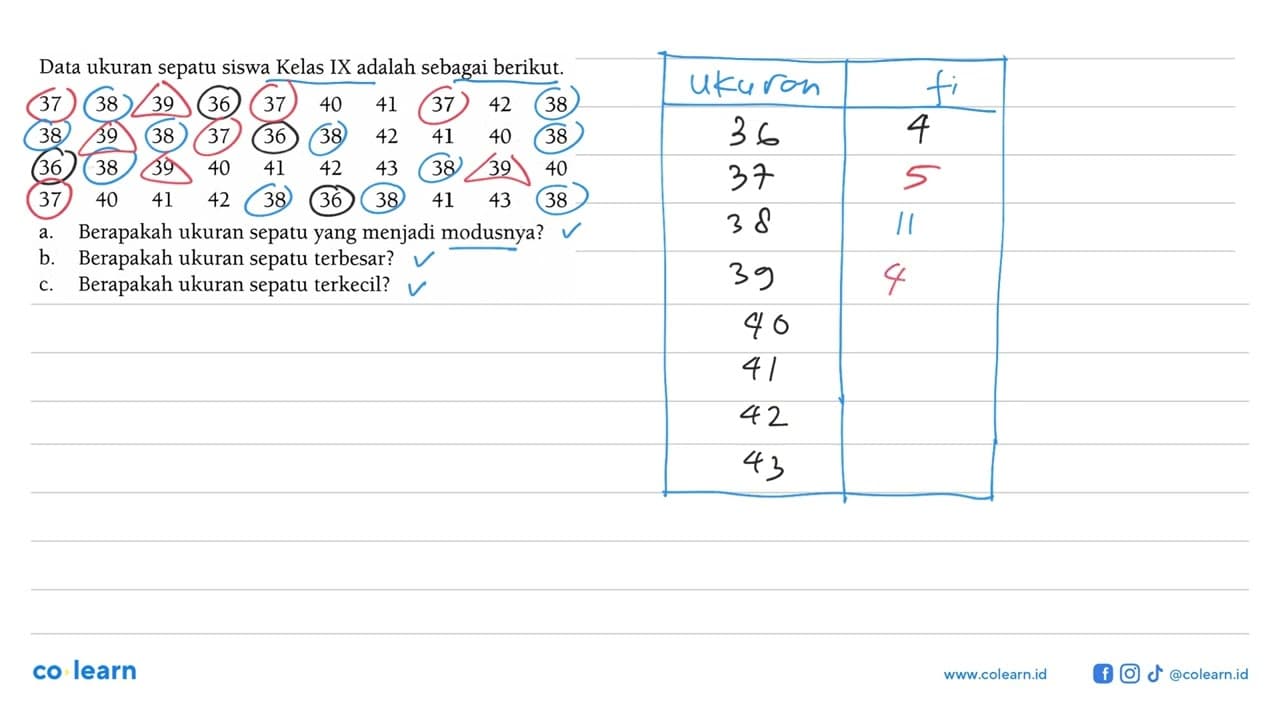 Data ukuran sepatu siswa Kelas IX adalah sebagai berikut.
37 38 39 36 37 40 41 37 42 38
38 39 38 37 36 38 42 41 40 38
36 38 39 40 41 42 43 38 39 40
37 40 41 42 38 36 38 41 43 38
a. Berapakah ukuran sepatu yang menjadi modusnya?
b. Berapakah ukuran sepatu terbesar?
c. Berapakah ukuran sepatu terkecil?
ukuran fi
36 4
37 5
38 11
39 4
40
41
42
43
co learn
www.colearn.id @colearn.id